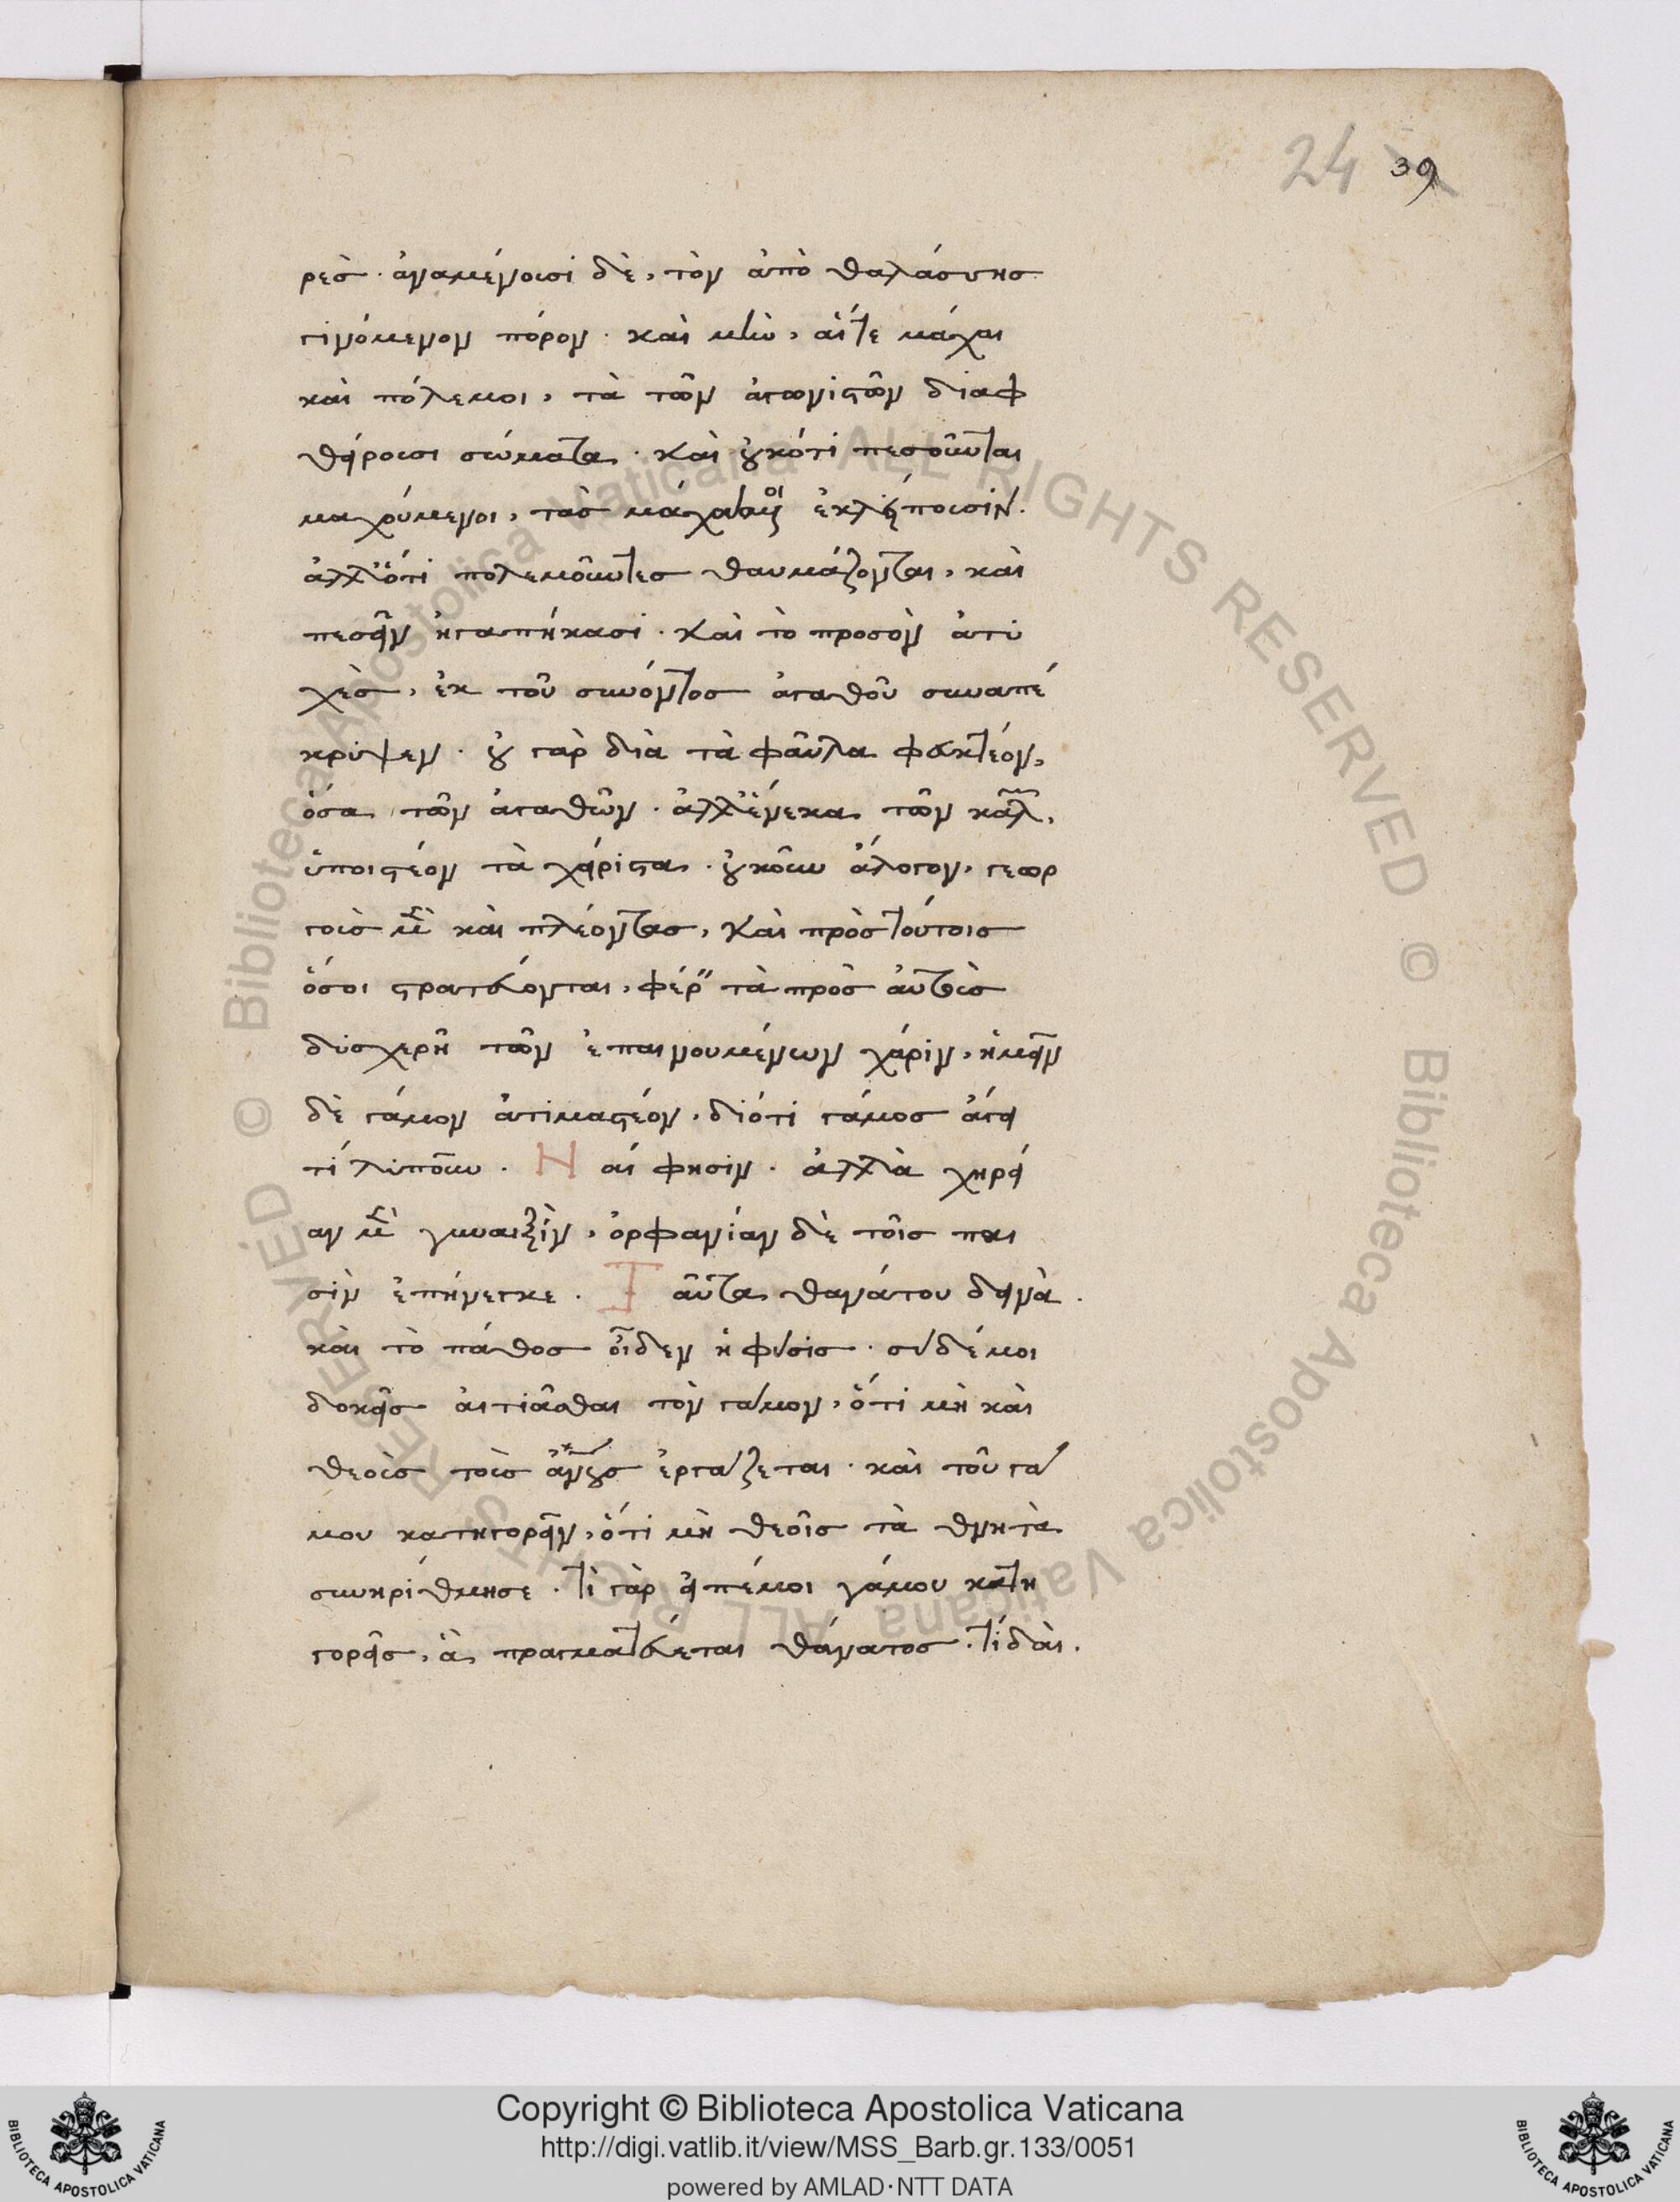 24 39
ρες· ἀναμένουσι δὲ, τὸν ἀπὸ θαλάσσης
γινόμενον πόρον· καὶ μὴν, αἵτε μάχαι
καὶ πόλεμοι, τὰ τῶν ἀγωνιστῶν διαφ
θείρουσι σώματα· καὶ οὐχ ὅτι πεσοῦνται
μαχούμενοι, τὰς μάχας ἐκλείπουσιν·
ἀλλ' ὅτι πολεμοῦντες θαυμάζονται, καὶ
πεσεῖν ἠγαπήκασι· καὶ τὸ προσὸν ἀτυ
χὲς, ἐκ τοῦ συνόντος ἀγαθοῦ συναπέ
κρυψεν· οὐ γὰρ διὰ τὰ φαῦλα φευκτέον,
ὅσα τῶν ἀγαθῶν· ἀλλ' ἕνεκα τῶν καλ,
ὑποιστέον τὰ χείριστα· οὐκοῦν ἄλογον, γεωρ
γοὺς μὲν καὶ πλέοντας, καὶ πρὸς τούτοις
ὅσοι στρατεύονται, φέρ τὰ πρὸς αὐτοὺς
δυσχερῆ τῶν ἐπαινουμένων χάριν, ἡμεῖν
δὲ γάμον ἀτιμαστέον, διότι γάμος ἄγει
τί λυποῦν· Ναί φησιν· ἀλλὰ χηρεί
αν μὲν γυναιξὶν, ὀρφανίαν δὲ τοῖς παι
σὶν ἐπήνεγκε· Ταῦτα θανάτου δεινὰ·
καὶ τὸ πάθος οἶδεν ἡ φύσις· σὺ δέ μοι
δοκεῖς αἰτιᾶσθαι τὸν γάμον, ὅτι μὴ καὶ
θεοὺς τοὺς ἀνους ἐργάζεται· καὶ τοῦ γά
μου κατηγορεῖν, ὅτι μὴ θεοῖς τὰ θνητὰ
συνηρίθμησε· τί γὰρ εἰπέ μοι γάμου κατη
γορεῖς, ἃ πραγματεύεται θάνατος· τί δαὶ·
Copyright © Biblioteca Apostolica Vaticana
http://digi.vatlib.it/view/MSS_Barb.gr.133/0051
powered by AMLAD·NTT DATA
BIBLIOTECA APOSTOLICA VATICANA
BIBLIOTECA APOSTOLICA VATICANA
© Biblioteca Apostolica Vaticana ALL RIGHTS RESERVED © Biblioteca Apostolica Vaticana ALL RIGHTS RESERVED